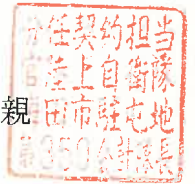 親
分任契約担当
官陸上自衛隊
海田市駐屯地
第350会計隊長